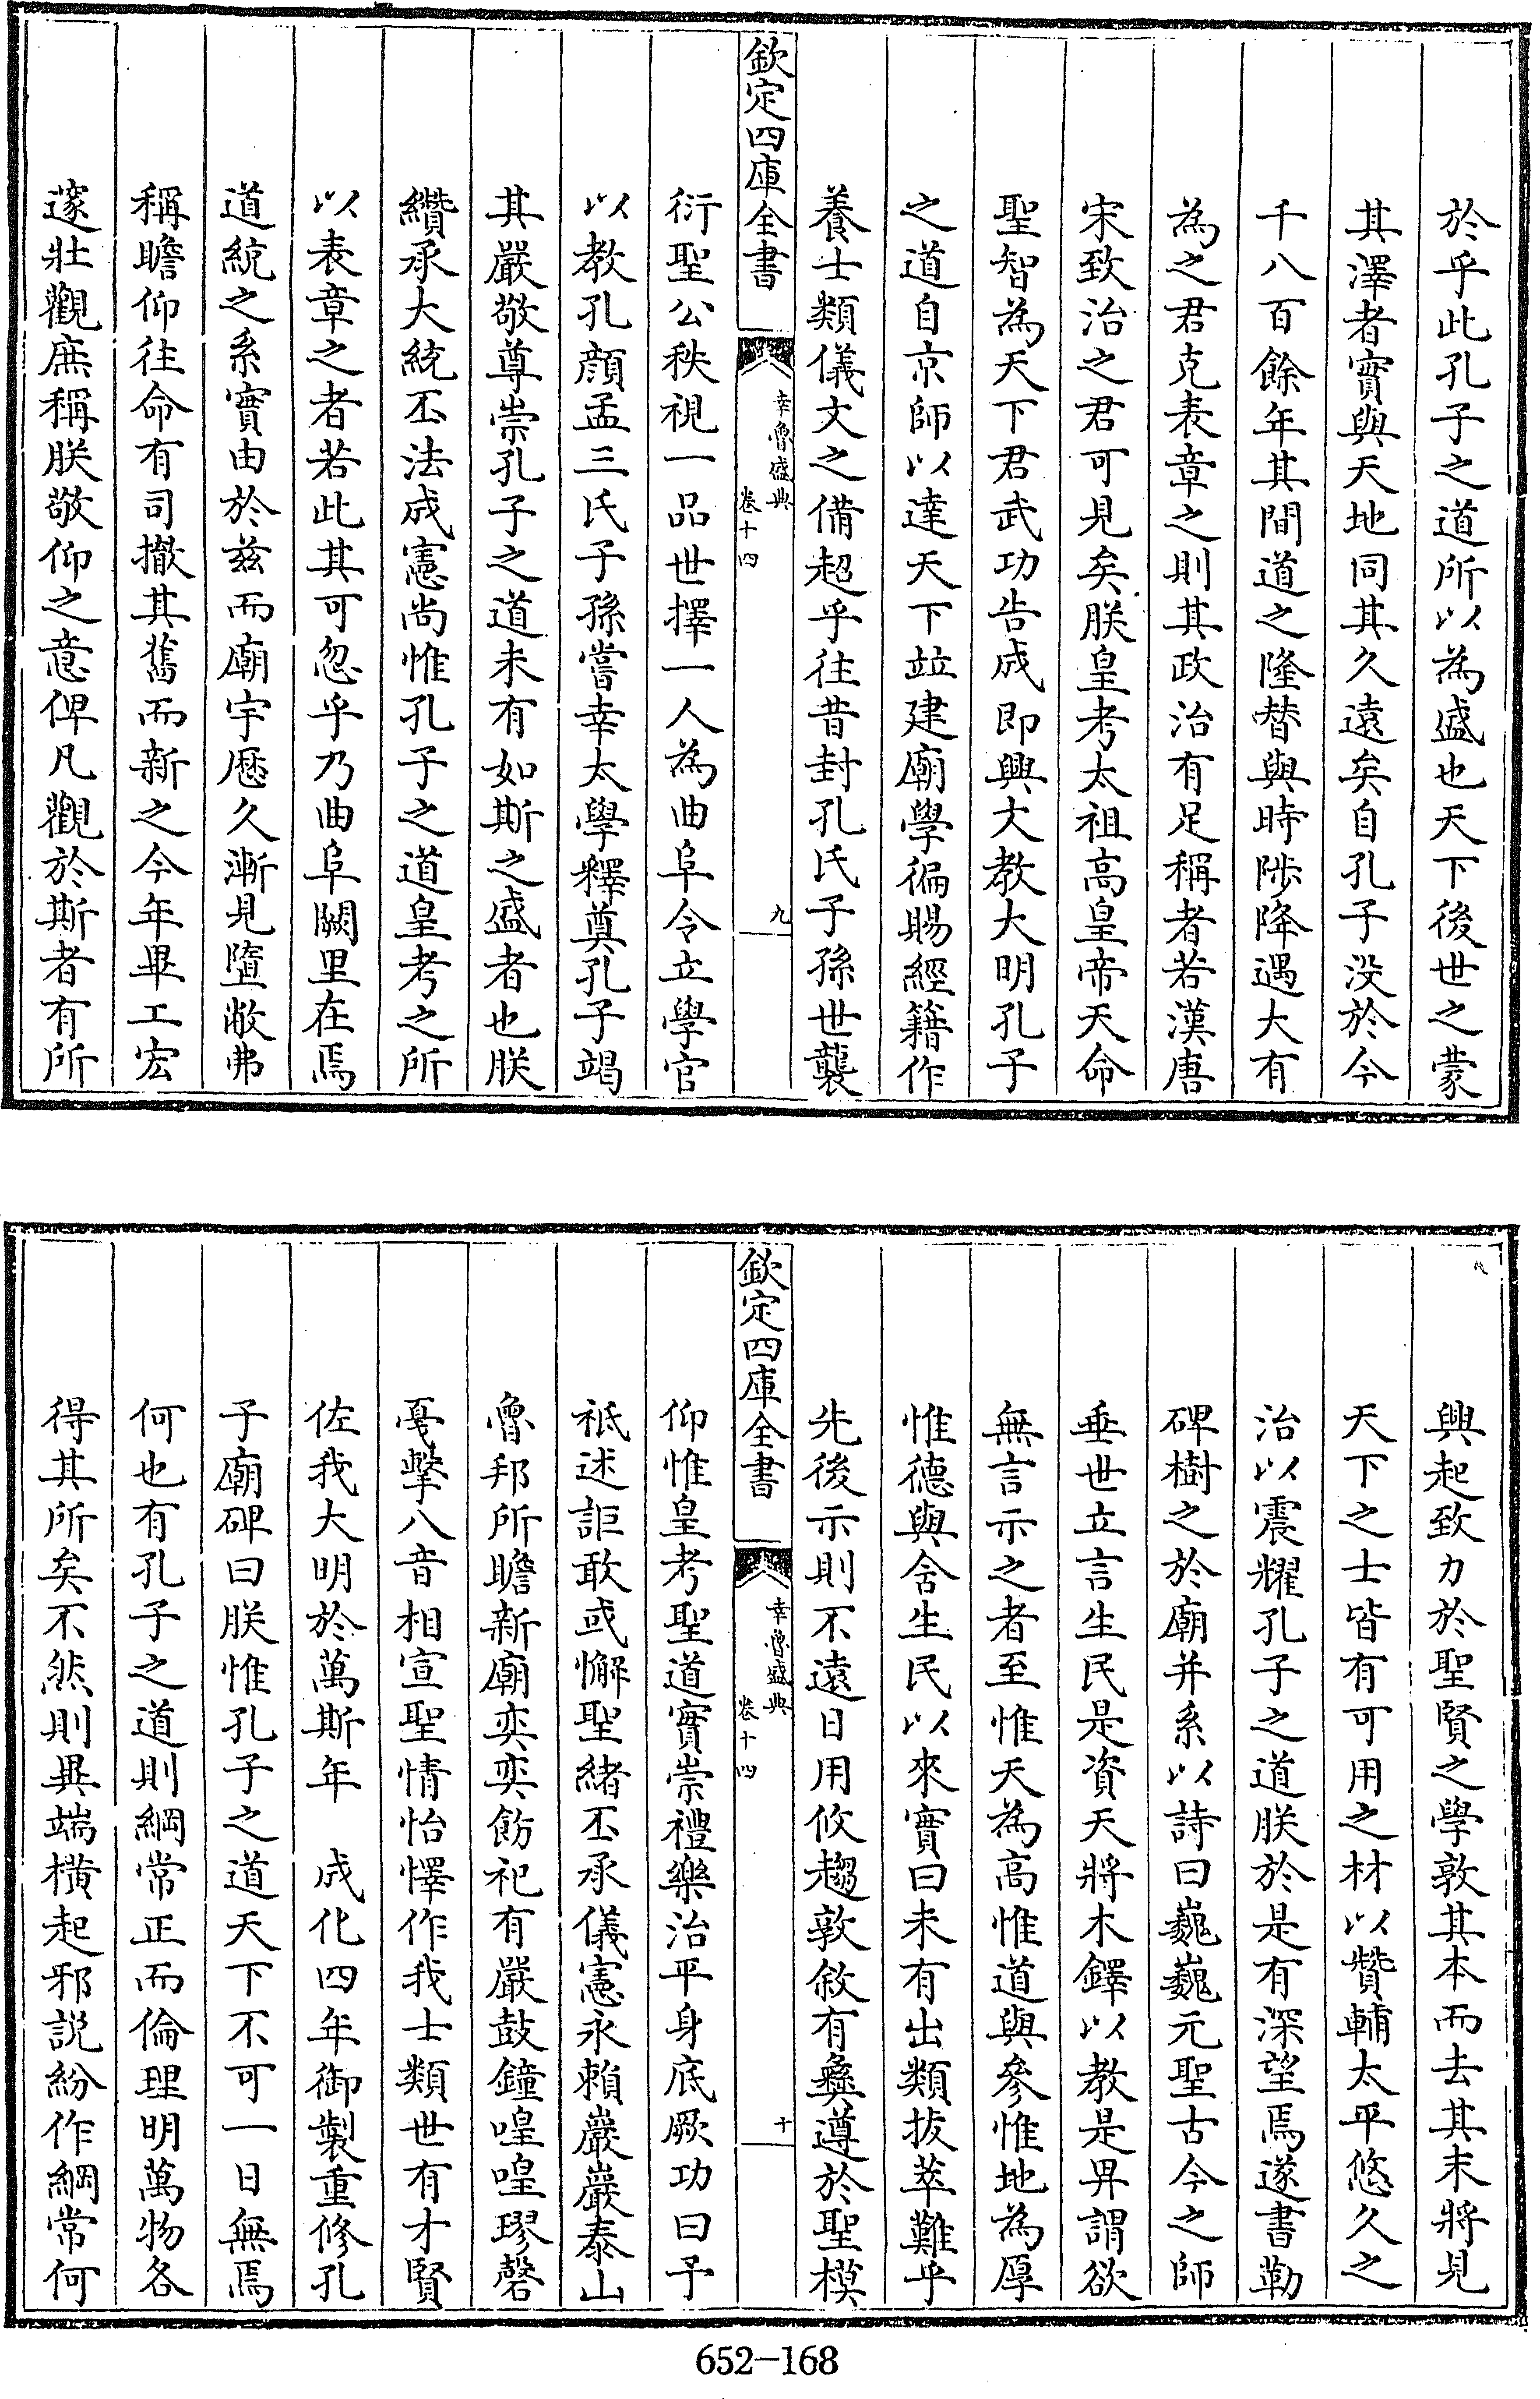 於乎此孔子之道所以為盛也天下後世之蒙
其澤者實與天地同其久遠矣自孔子沒於今
千八百餘年其間道之隆替與時陟降遇大有
為之君克表章之則其政治有足稱者若漢唐
宋致治之君可見矣朕皇考太祖高皇帝天命
聖智為天下君武功告成即興文教大明孔子
之道自京師以達天下竝建廟學徧賜經籍作
養士類儀文之備超乎往昔封孔氏子孫世襲
欽定四庫全書
幸魯盛典
卷十四
九
衍聖公秩視一品世擇一人為曲阜令立學官
以教孔顔孟三氏子孫嘗幸太學釋奠孔子竭
其嚴敬尊崇孔子之道未有如斯之盛者也朕
纘承大統丕法成憲尚惟孔子之道皇考之所
以表章之者若此其可忽乎乃曲阜闕里在焉
道統之系實由於兹而廟宇歷久漸見隳敝弗
稱瞻仰往命有司撤其舊而新之今年畢工宏
邃壯觀庶稱朕敬仰之意俾凡觀於斯者有所
興起致力於聖賢之學敦其本而去其末將見
天下之士皆有可用之材以贊輔太平悠久之
治以震耀孔子之道朕於是有深望焉遂書勒
碑樹之於廟并系以詩曰巍巍元聖古今之師
垂世立言生民是資天將木鐸以教是畀謂欲
無言示之者至惟天為高惟道與參惟地為厚
惟德與含生民以來實曰未有出類拔萃難乎
先後示則不遠日用攸趨敦敘有彝遵於聖模
欽定四庫全書
幸魯盛典
卷十四
十
仰惟皇考聖道實崇禮樂治平身底厥功曰予
祗述詎敢或懈聖緒丕承儀憲永賴巖巖泰山
魯邦所瞻新廟奕奕飭祀有嚴鼓鐘喤喤璆磬
戞擊八音相宣聖情怡懌作我士類世有才賢
佐我大明於萬斯年　成化四年御製重修孔
子廟碑曰朕惟孔子之道天下不可一日無焉
何也有孔子之道則綱常正而倫理明萬物各
得其所矣不然則異端橫起邪説紛作綱常何
652-168